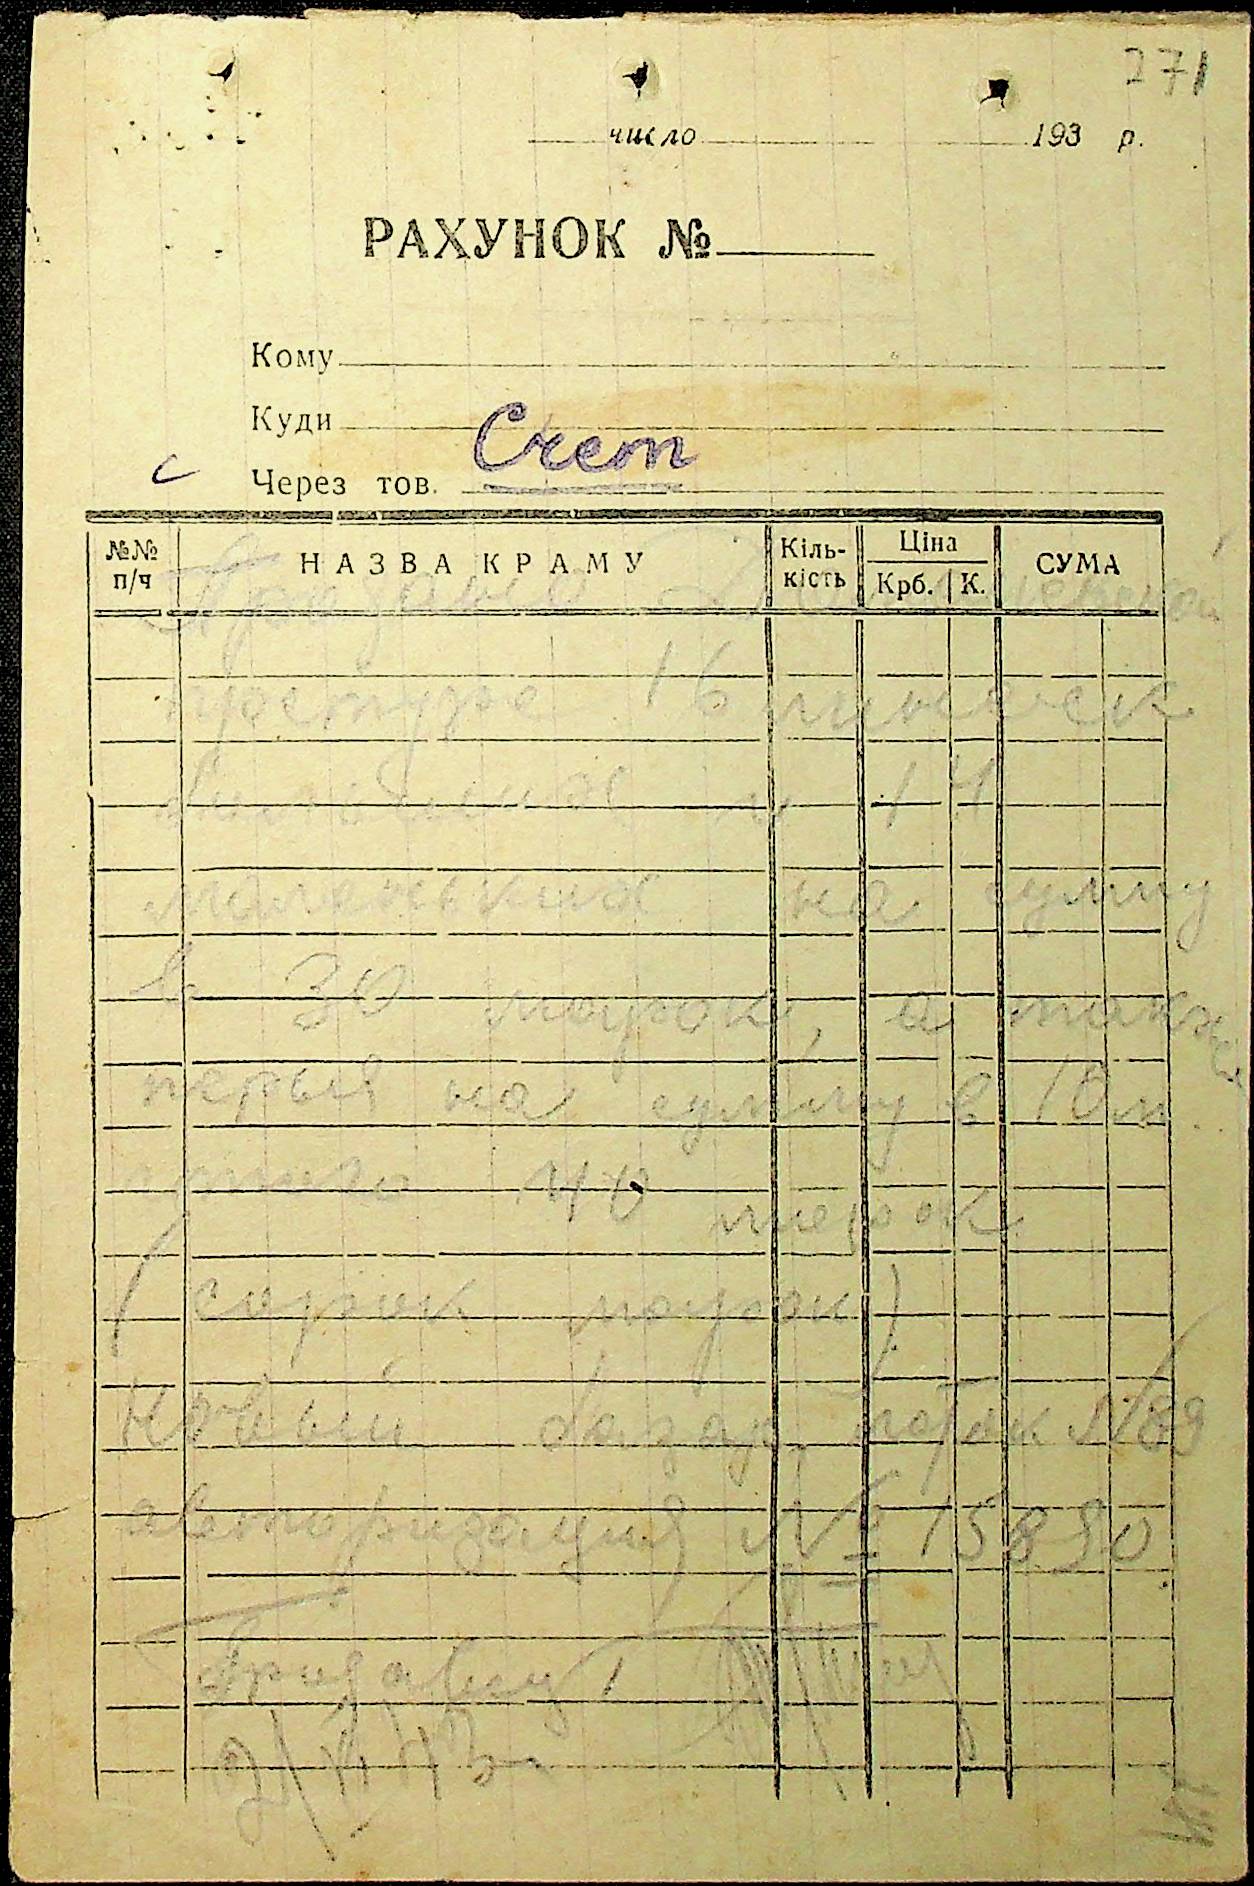 271
число 193 р.
РАХУНОК №
Кому
Куди
Счет
Через тов.
№№ п/ч НАЗВА КРАМУ Кіль-кість Ціна Крб. К. СУМА
Продано
16
больших и 14
маленьких на сумму
в 30 марок, а также
перья на сумму в 10 м
всего 40 марок
(сорок марок)
Новый базар, ларек №89
авторизация № 15890
Продавец